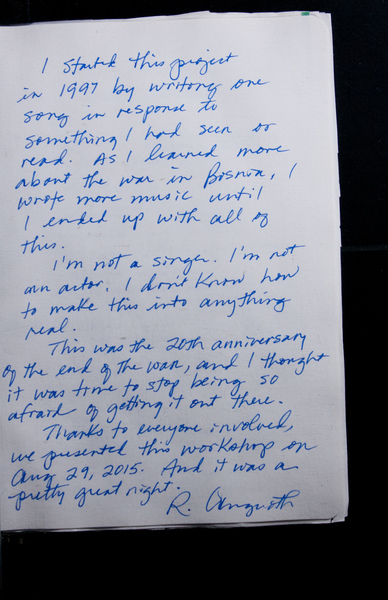 I started this project
in 1997 by writing one
song in response to
something I had seen or
read. As I learned more
about the war in Bosnia, I
wrote more music until
I ended up with all of
this.
I'm not a singer. I'm not
an actor. I don't know how
to make this into anything
real.
This was the 20th anniversary
of the end of the war, and I thought
it was time to stop being so
afraid of getting it out there.
Thanks to everyone involved,
we presented this workshop on
Aug 29, 2015. And it was a
pretty great night.
R.